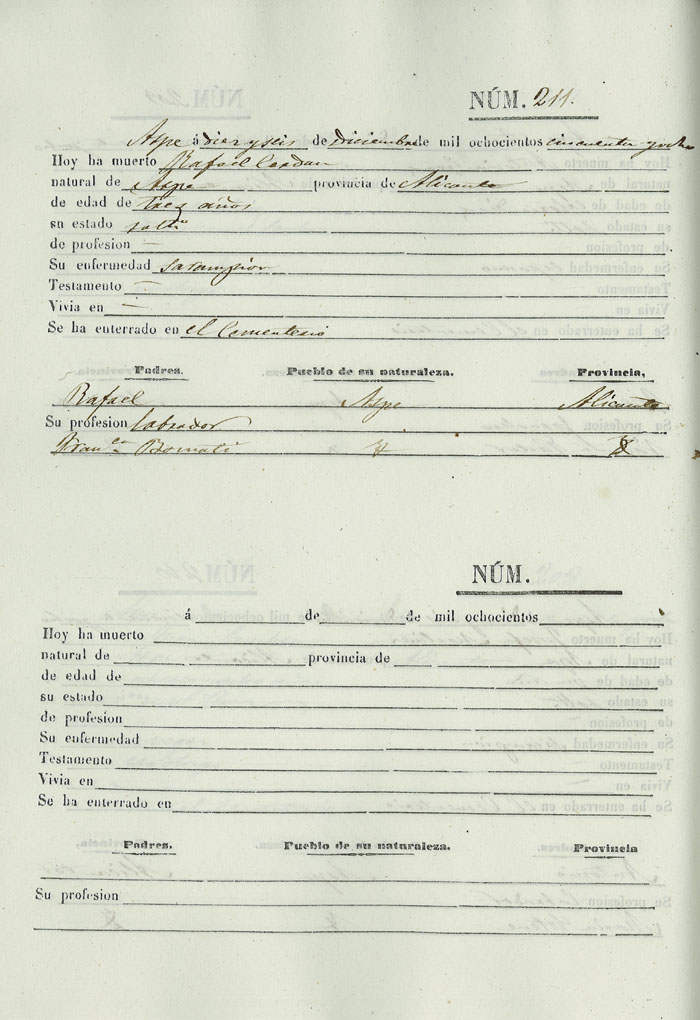 NÚM. 211.
Aspe á diez y seis de Diciembre de mil ochocientos cincuenta y ocho
Hoy ha muerto Rafael Cerdan
natural de Aspe provincia de Alicante
de edad de tres años
su estado solt.º
de profesion —
Su enfermedad sarampion
Testamento —
Vivia en —
Se ha enterrado en el Cementerio
Padres. Pueblo de su naturaleza. Provincia,
Rafael Aspe Alicante
Su profesion labrador
Fran.ca
NÚM.
á de de mil ochocientos
Hoy ha muerto
natural de provincia de
de edad de
su estado
de profesion
Su enfermedad
Testamento
Vivia en
Se ha enterrado en
Padres. Pueblo de su naturaleza. Provincia
Su profesion